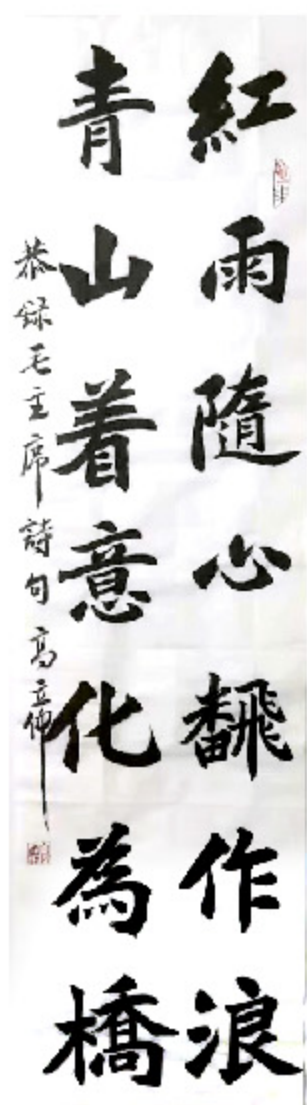 紅雨隨心飜作浪
青山着意化為橋
恭録毛主席詩句 高立偉